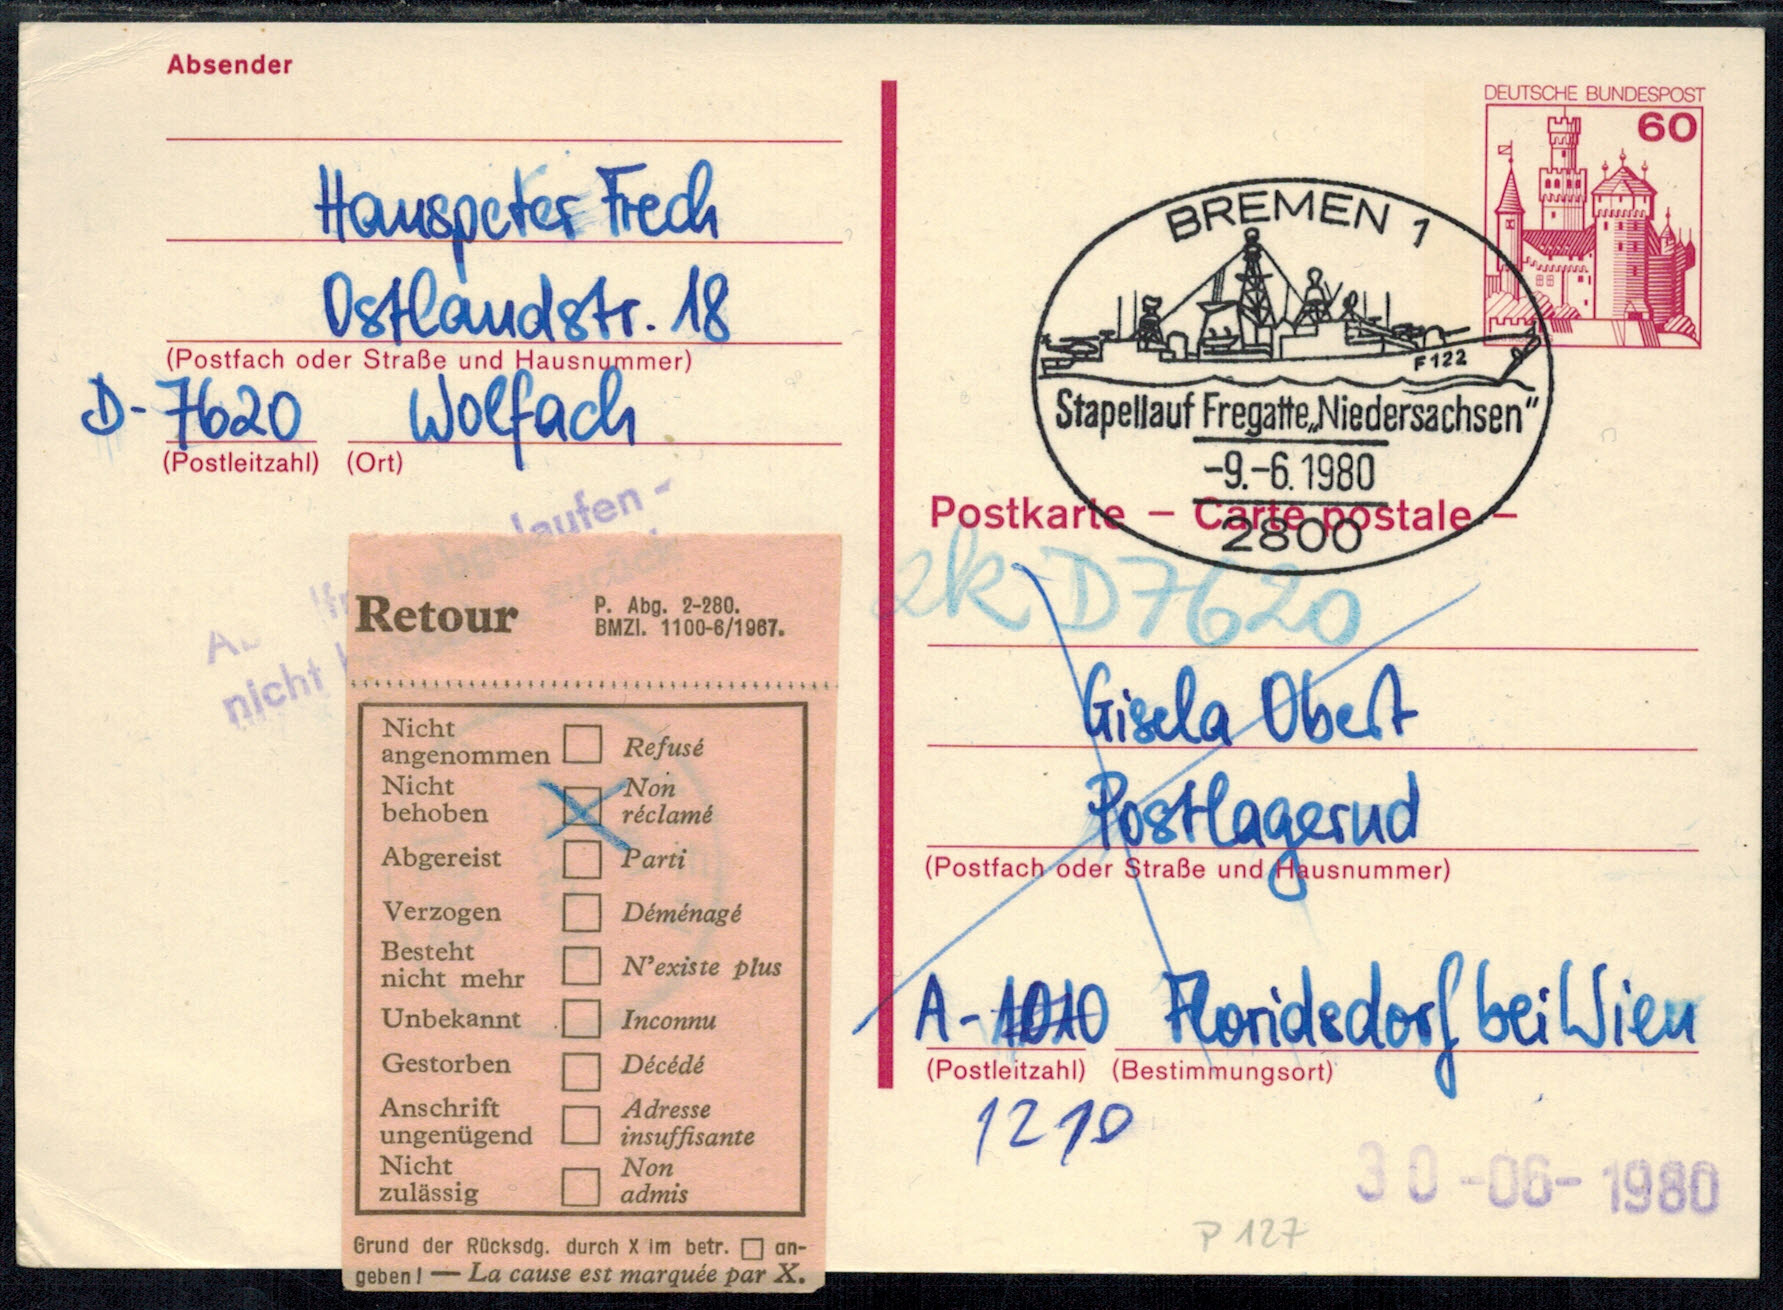 Absender
Hanspeter Frech
Ostlandstr. 18
(Postfach oder Straße und Hausnummer)
D-7620 Wolfach
(Postleitzahl) (Ort)
abgelaufen -
zurück
nicht
Retour
P. Abg. 2-280.
BMZl. 1100-6/1967.
Nicht angenommen Refusé
Nicht behoben Non réclamé
Abgereist Parti
Verzogen Déménagé
Besteht nicht mehr N'existe plus
Unbekannt Inconnu
Gestorben Décédé
Anschrift ungenügend Adresse insuffisante
Nicht zulässig Non admis
Grund der Rücksdg. durch X im betr. □ an-
geben! — La cause est marquée par X.
DEUTSCHE BUNDESPOST
60
BREMEN 1
F122
Stapellauf Fregatte „Niedersachsen"
-9.-6.1980
2800
Postkarte – Carte postale –
zk D7620
Gisela Obert
Postlagernd
(Postfach oder Straße und Hausnummer)
A-1010 Floridsdorf bei Wien
(Postleitzahl) (Bestimmungsort)
1210
30-06-1980
P 127